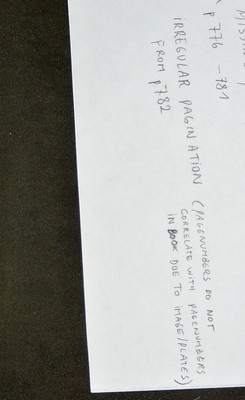 p 776 - 781
IRREGULAR PAGINATION (PAGENUMBERS DO NOT
CORRELATE WITH PAGENUMBERS
IN BOOK DUE TO IMAGE/PLATES)
FROM p782